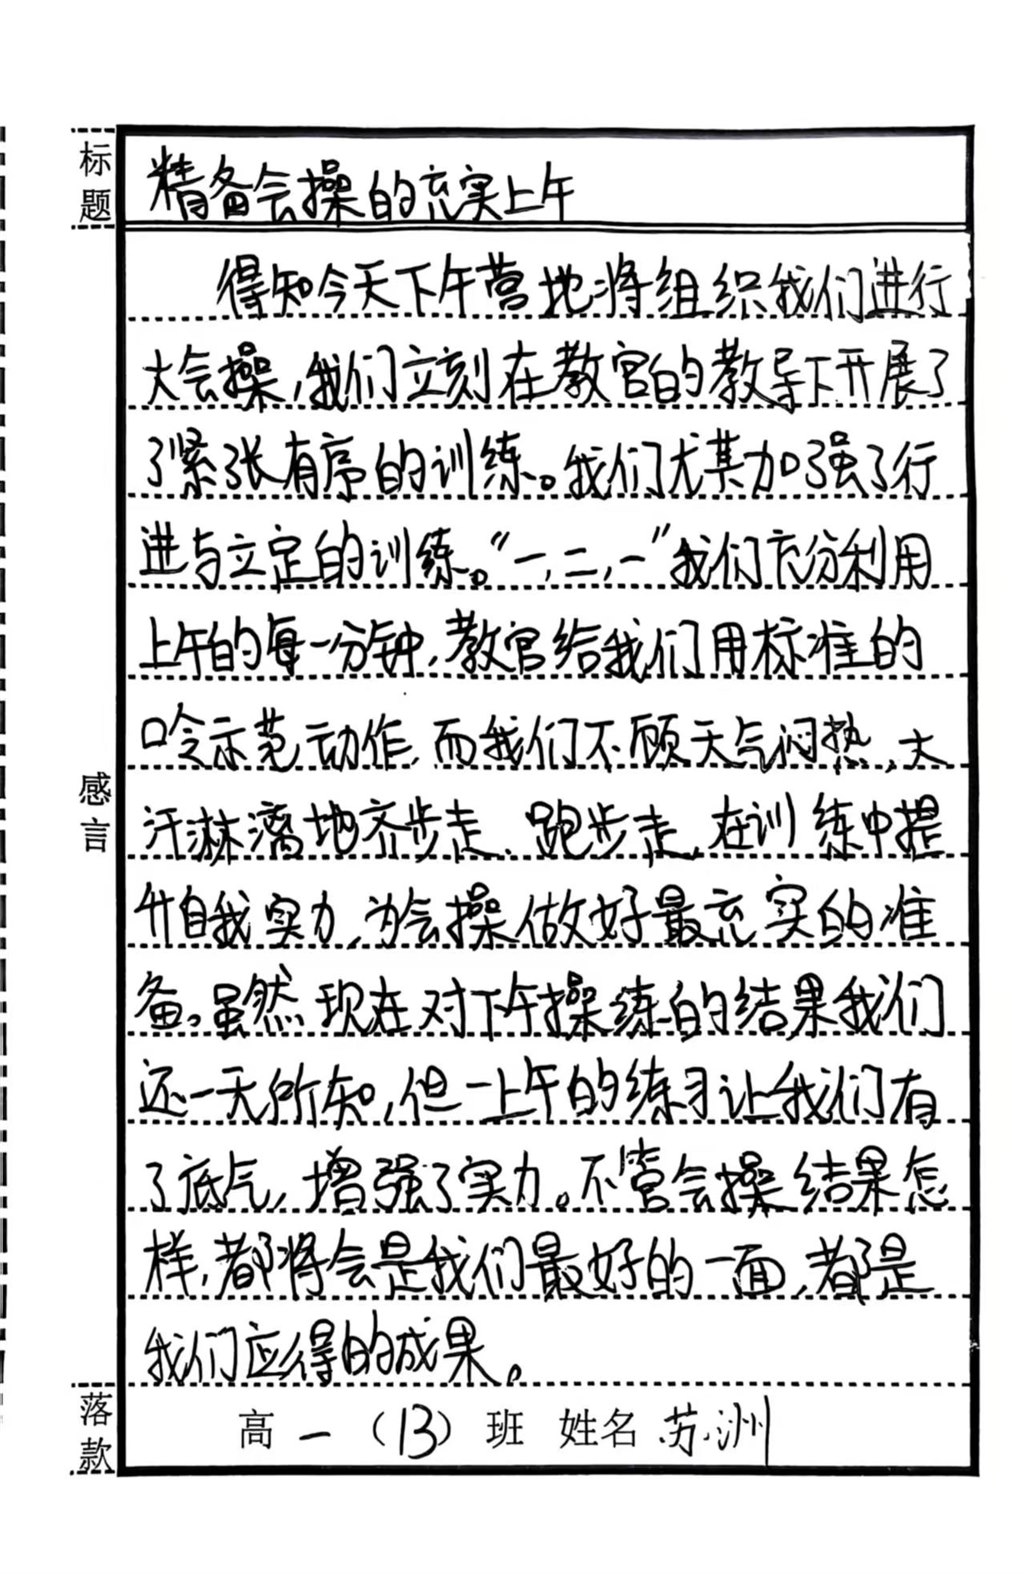 标题
精备会操的充实上午
得知今天下午营地将组织我们进行
大会操,我们立刻在教官的教导下开展了
了紧张有序的训练。我们尤其加强了行
进与立定的训练。“一,二,一”我们充分利用
上午的每一分钟,教官给我们用标准的
口令示范动作,而我们不顾天气闷热,大
汗淋漓地齐步走、跑步走,在训练中提
升自我实力,为会操做好最充实的准
备。虽然现在对下午操练的结果我们
还一无所知,但一上午的练习让我们有
了底气,增强了实力。不管会操结果怎
样,都将会是我们最好的一面,都是
我们应得的成果。
感言
落款
高一(13)班 姓名 苏洲